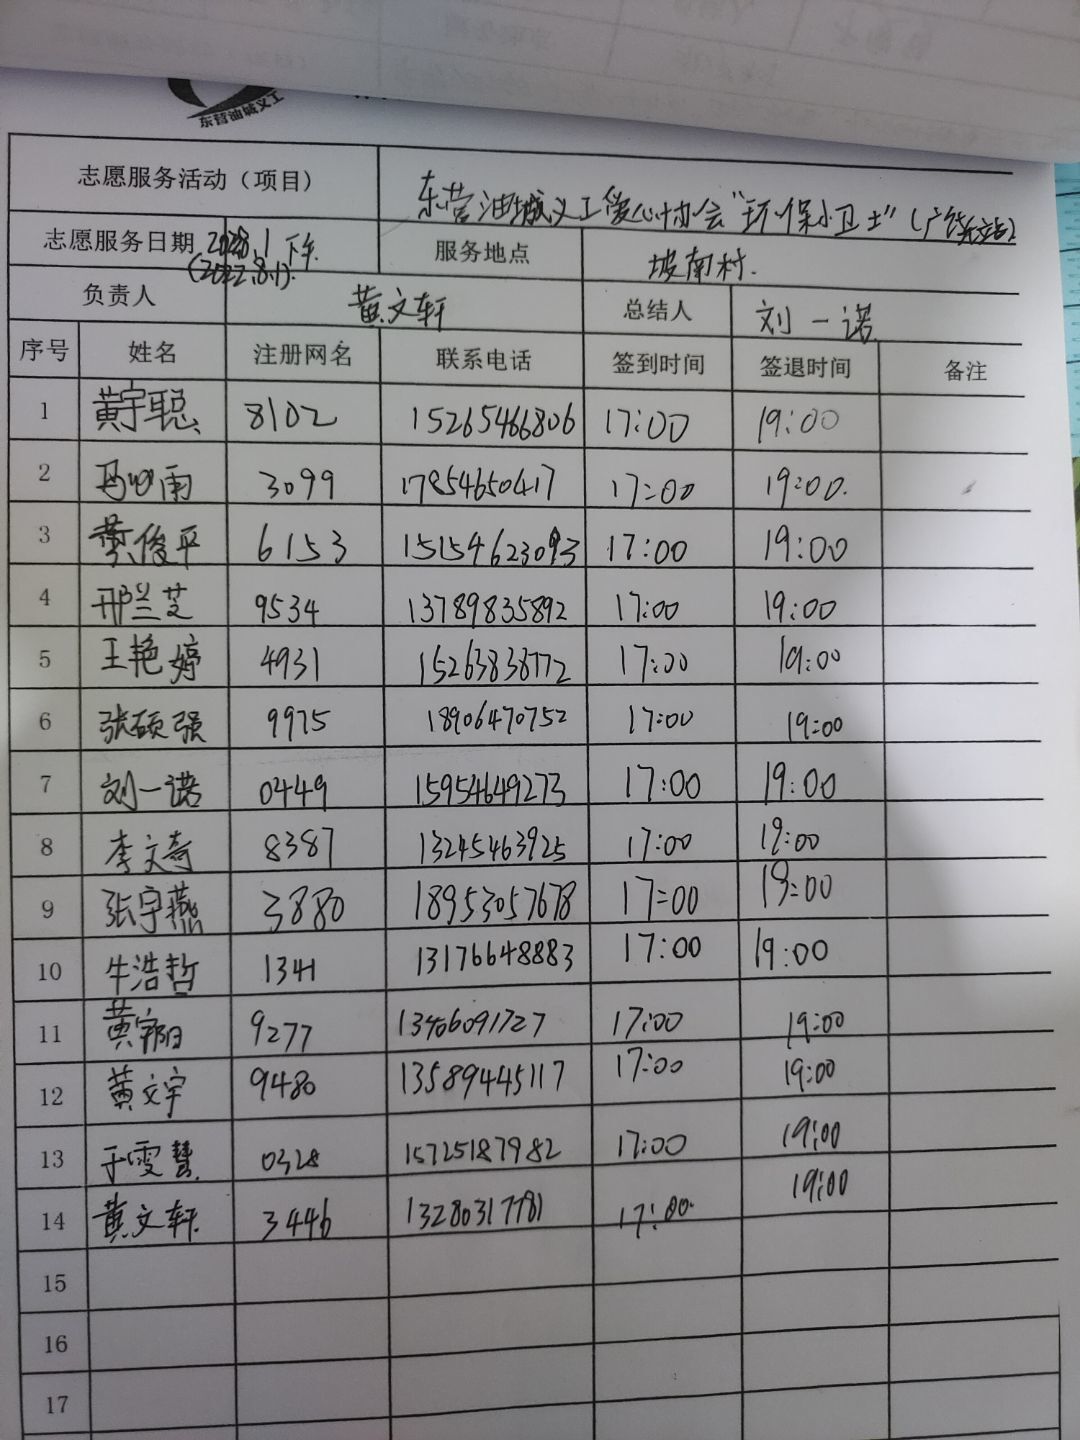 东营油城义工
志愿服务活动（项目） 东营油城义工爱心协会“环保小卫士”（广饶站）
志愿服务日期 下午 服务地点 坡南村.
(2022.8.1).
负责人 黄文轩 总结人 刘一诺
序号 姓名 注册网名 联系电话 签到时间 签退时间 备注
1 黄宇聪 8102 15265466806 17:00 19:00
2 3099 17854650417 17:00 19:00.
3 蔡俊平 6153 15154623093 17:00 19:00
4 邢兰芝 9534 13789835892 17:00 19:00
5 王艳婷 4931 15263838772 17:00 19:00
6 张硕强 9975 18906470752 17:00 19:00
7 刘一诺 0449 15954649273 17:00 19:00
8 李文奇 8387 13245463925 17:00 19:00
9 张宇燕 3880 18953057678 17:00 19:00
10 牛浩哲 1341 13176648883 17:00 19:00
11 9277 13406091727 17:00 19:00
12 黄文宇 9480 13589445117 17:00 19:00
13 于雯慧 0328 15725187982 17:00 19:00
14 黄文轩 3446 13280317781 17:00 19:00
15
16
17